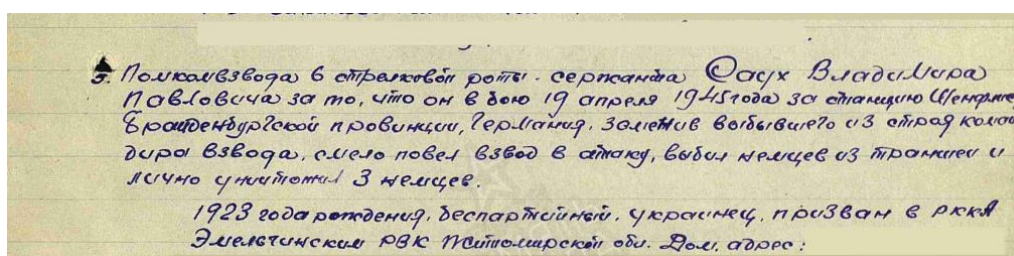 5. Помкомвзвода 6 стрелковой роты. сержанта Саух Владимира
Павловича за то, что он в бою 19 апреля 1945 года за станцию
Бранденбургской провинции, Германия, заменив выбывшего из строя коман
дира взвода, смело повел взвод в атаку, выбил немцев из траншеи и
лично уничтожил 3 немцев.
1923 года рождения, беспартийный, украинец, призван в РККА
Эмельчинским РВК Житомирской обл. Дом. адрес: